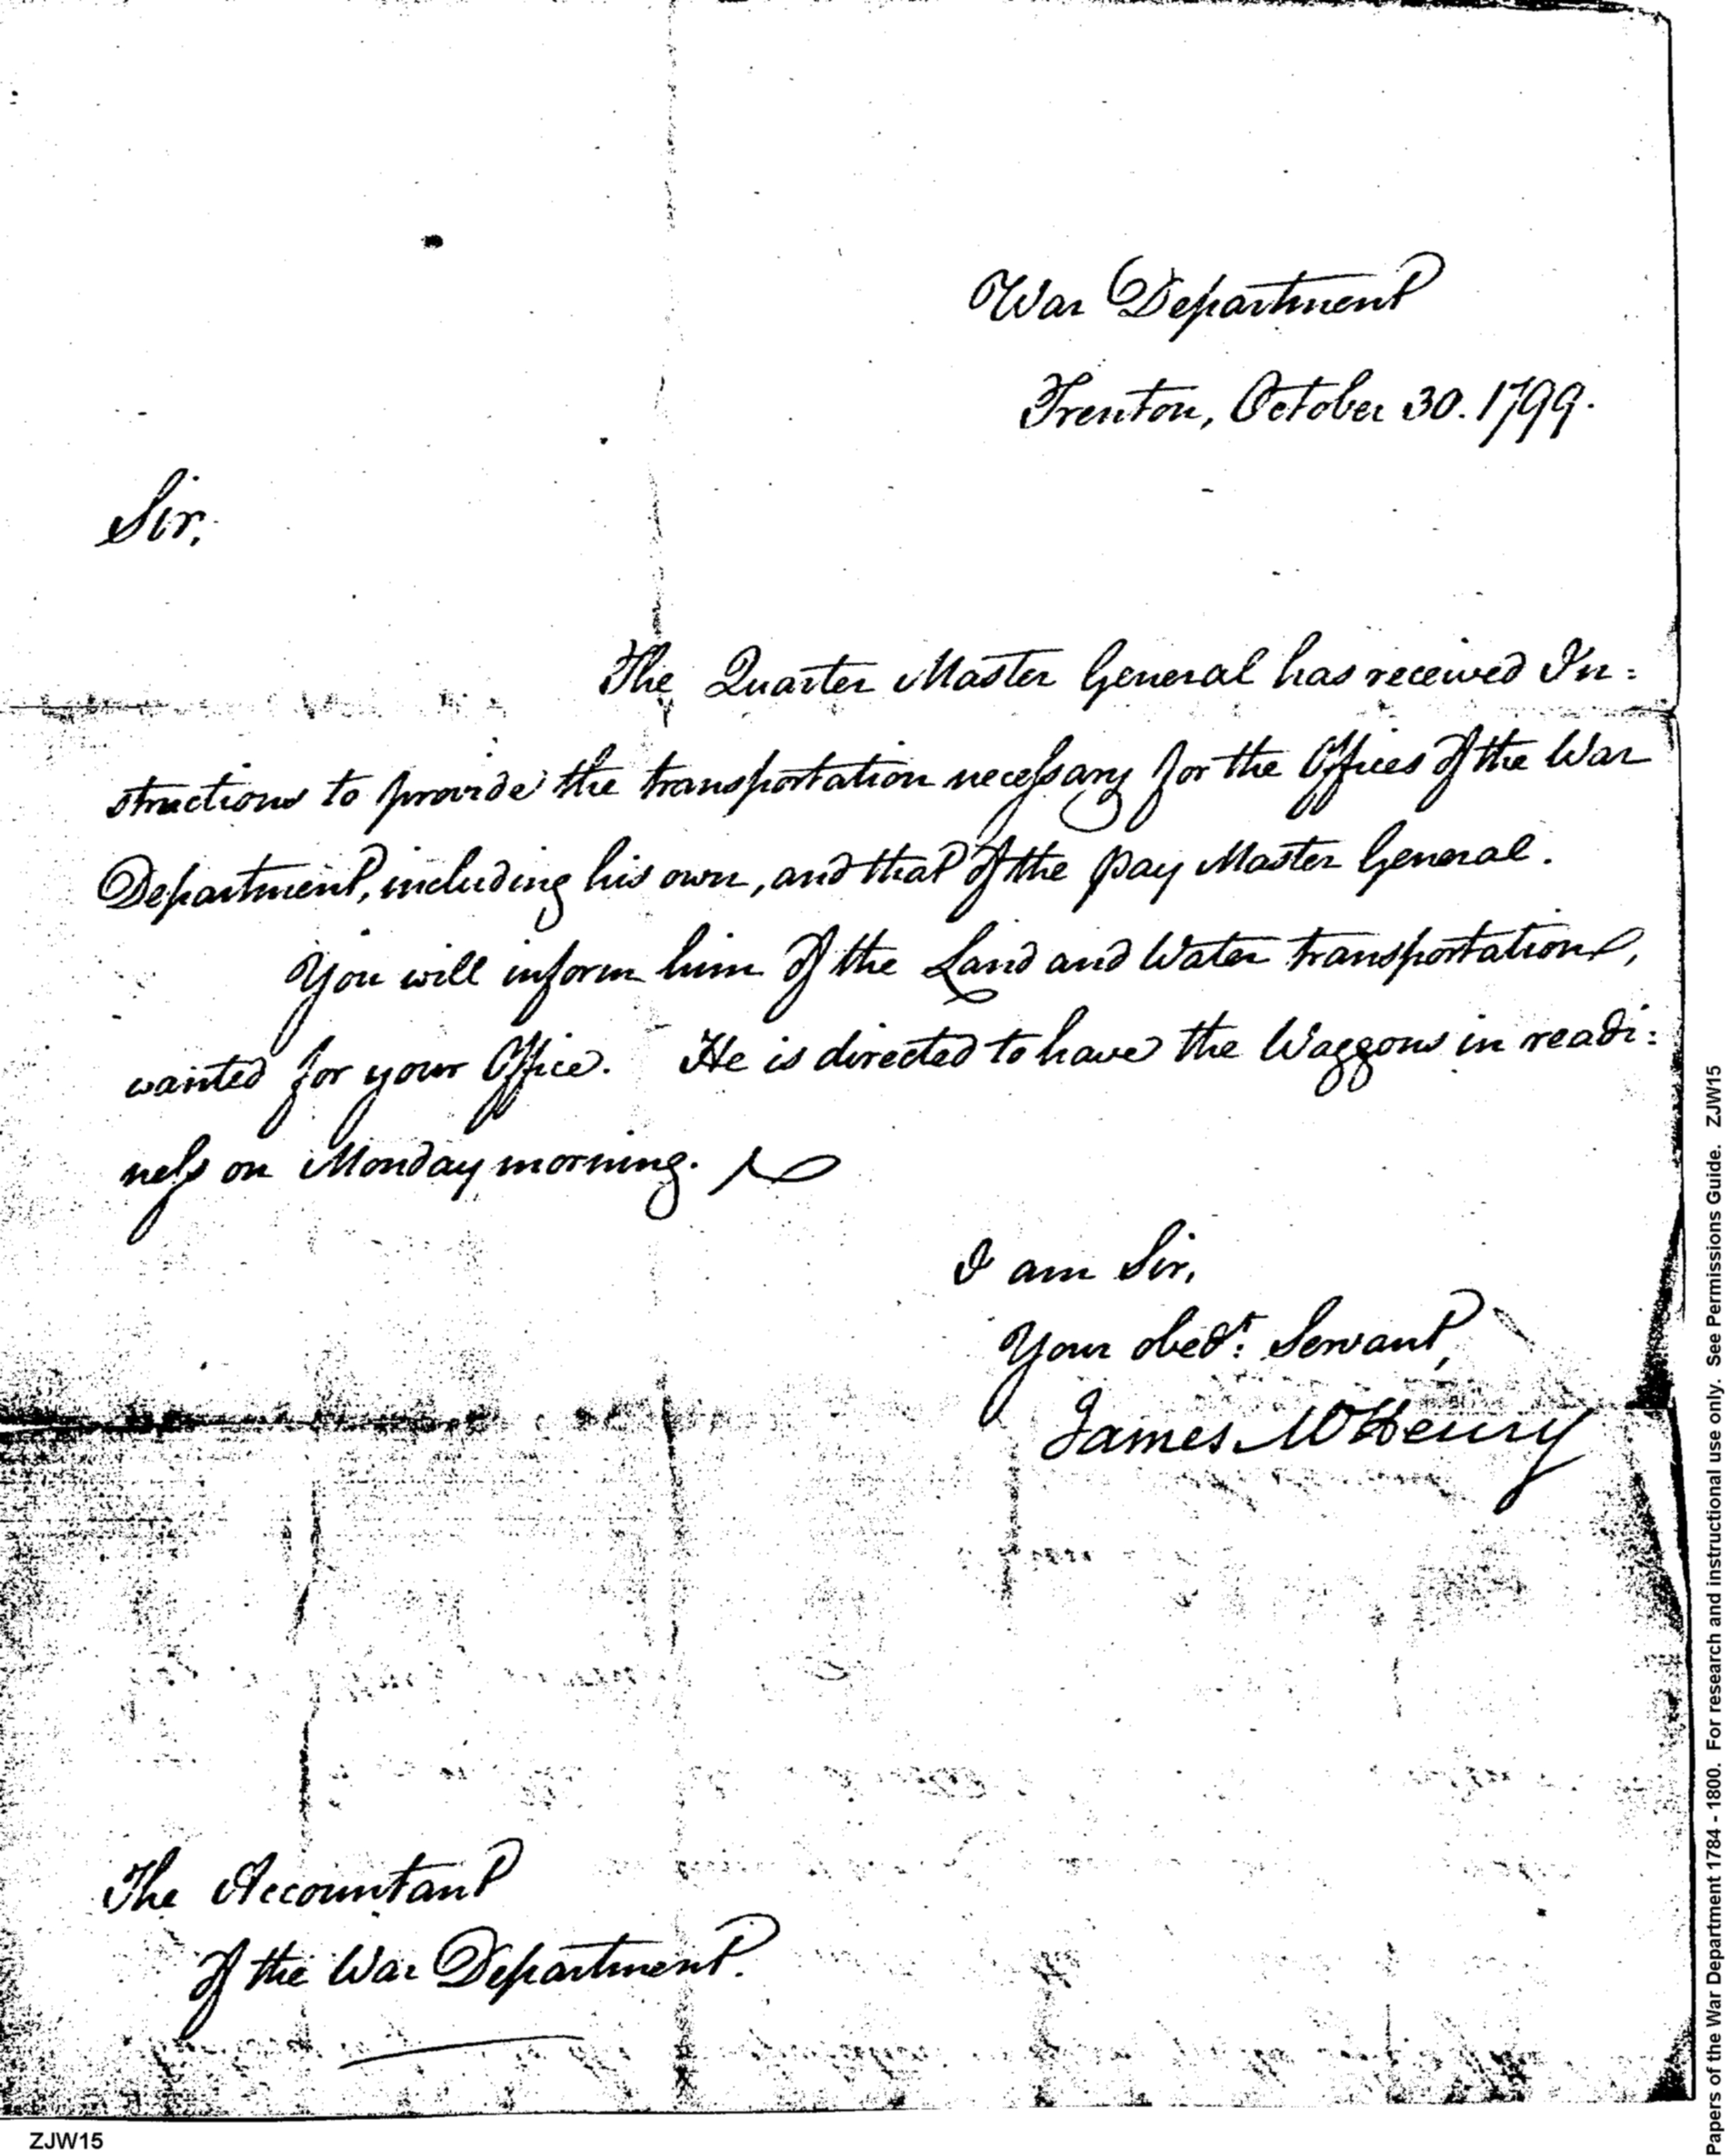 War Department
Trenton, October 30. 1799.
Sir,
The Quarter Master General has received In:
structions to provide the transportation necessary for the Offices of the War
Department, including his own, and that of the Pay Master General.
You will inform him of the Land and Water transportation,
wanted for your Office. He is directed to have the Waggons in readi:
ness on Monday morning.
I am Sir,
Your obedt: Servant,
James McHenry
The Accountant
of the War Department.
ZJW15
Papers of the War Department 1784 - 1800. For research and instructional use only. See Permissions Guide. ZJW15